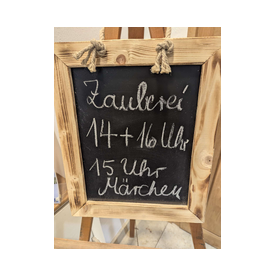 Zauberei
14+16 Uhr
15 Uhr
Märchen